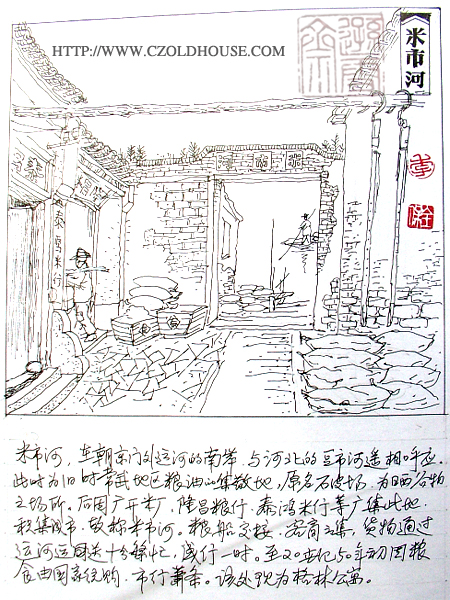 HTTP://WWW.CZOLDHOUSE.COM
米市河
米市河，在朝京门外运河的南岸，与河北的豆市河遥相呼应。
此时为旧时常武地区粮油的集散地，原名石，为日晒谷物
之场所。后因广开米厂，隆昌粮行、泰鸿米行等广集此地，
积集成市，故称米市河。粮船交接，客商云集，货物通过
运河运十分繁忙，盛行一时。至20世纪50年初因粮
食由国家统购，市行萧条。该处现为桂林公寓。